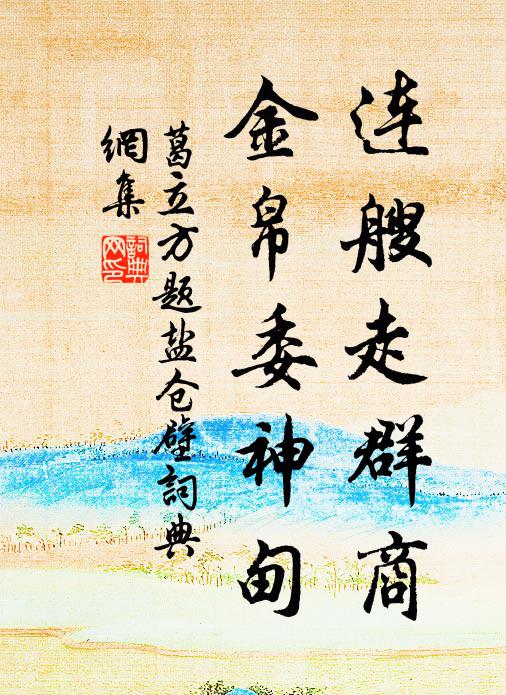 连艘走群商
金帛委神甸
葛立方题盐仓壁词典
網集
詞典
网印